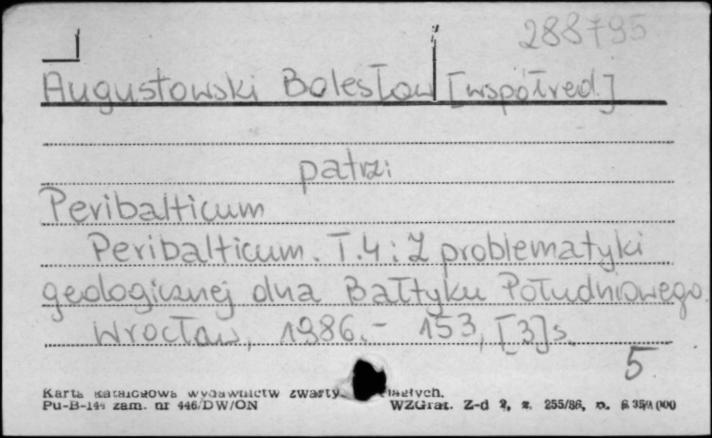 288795
Augustowski Bolesław [współred.]
patrz:
Peribalticum
Peribalticum. T.4: Z problematyki
geologicznej dna Bałtyku Południowego.
Wrocław, 1986.- 153, [3] s.
5
Karta katalogowa wydawnictw zwartych
Pu-B-144 zam. nr 446/DW/ON WZGraf. Z-d 2, z. 255/86, n.